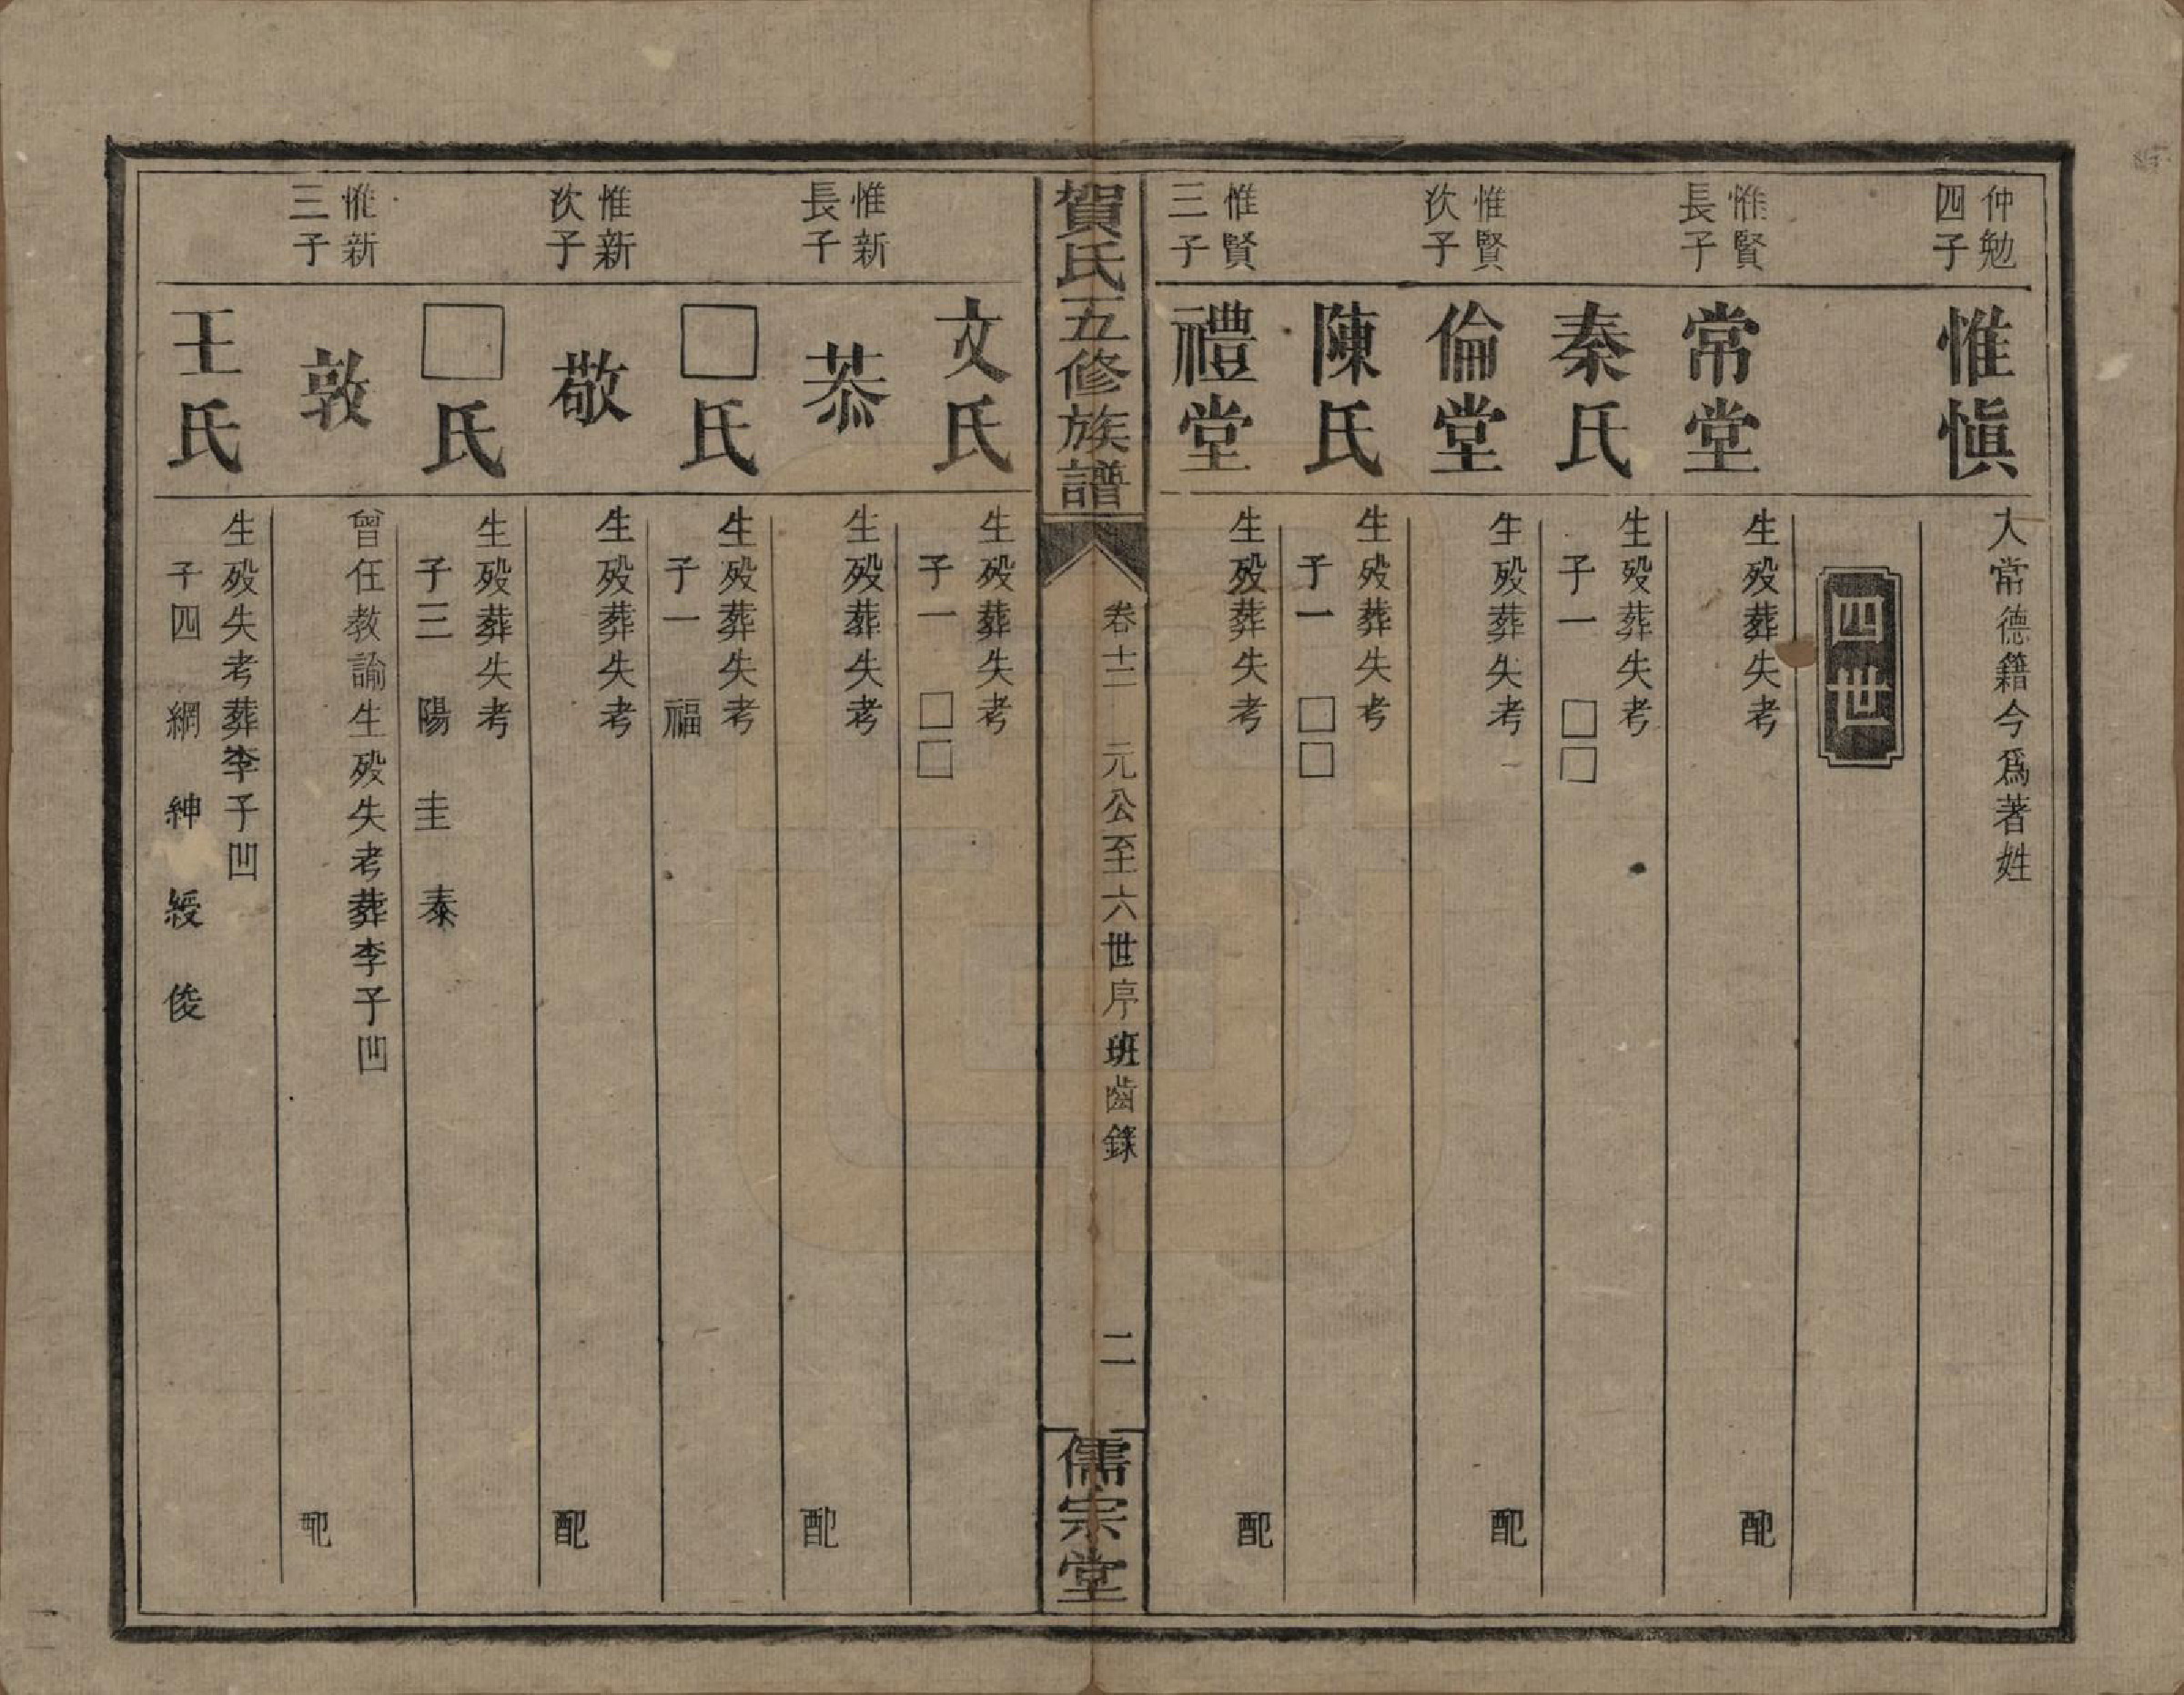 仲勉
四子
惟愼
入常德籍今爲著姓
四世
惟賢
長子
常堂
生殁葬失考
配
秦氏
生殁葬失考
子一 □□
惟賢
次子
倫堂
生殁葬失考
配
陳氏
生殁葬失考
子一 □□
惟賢
三子
禮堂
生殁葬失考
配
賀氏五修族譜
卷十二 元公至六世序班齒錄
二
儒宗堂
文氏
生殁葬失考
子一 □□
惟新
長子
恭
生殁葬失考
配
□氏
生殁葬失考
子一 福
惟新
次子
敬
生殁葬失考
配
□氏
生殁葬失考
子三 陽 圭 泰
惟新
三子
敦
曾任教諭生殁失考葬李子凹
配
王氏
生殁失考葬李子凹
子四 網 紳 綬 俊